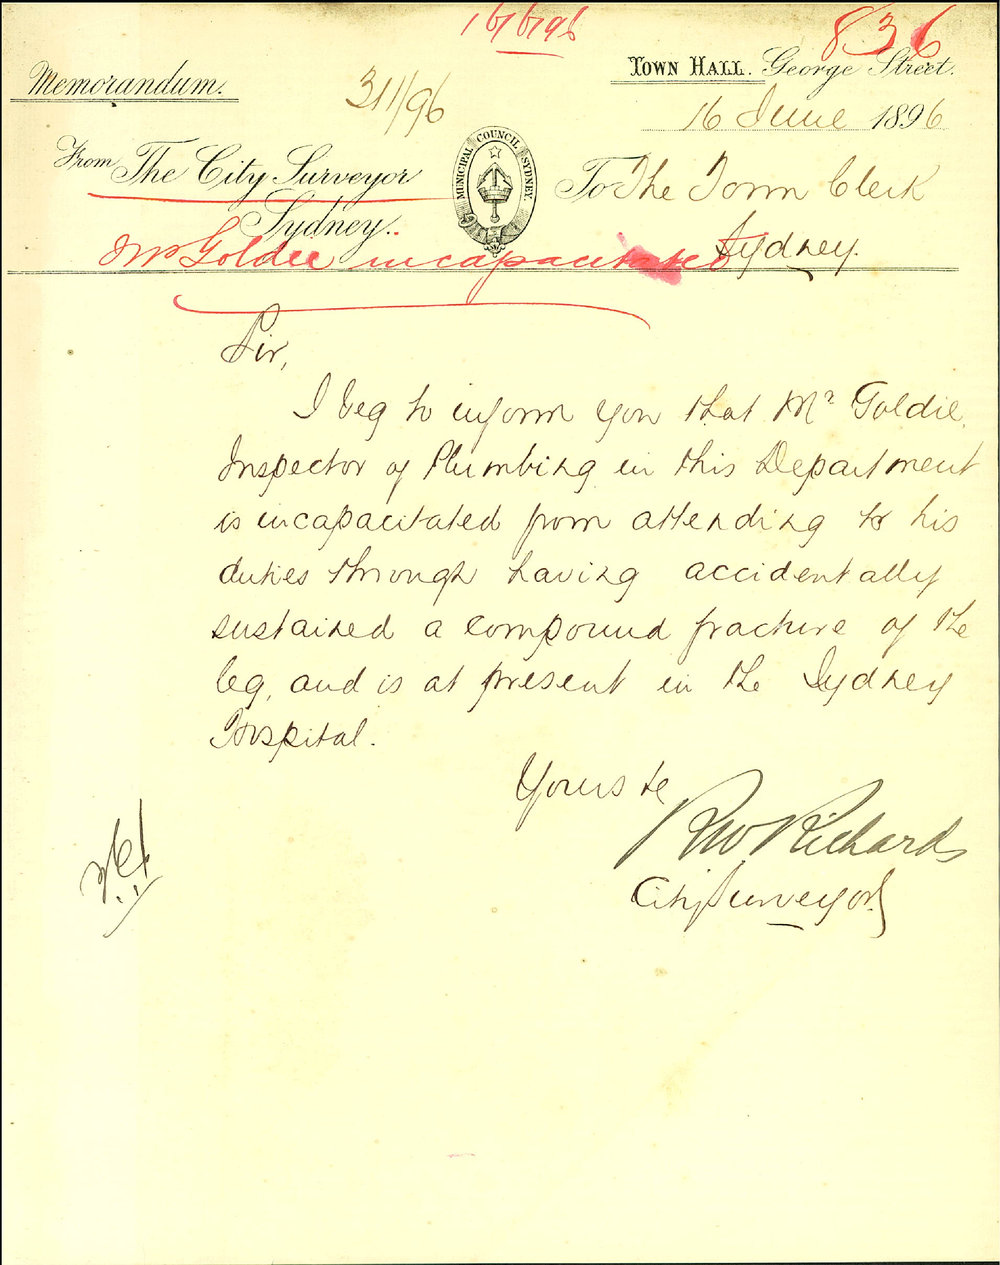 16/6/96
836
Memorandum.
311/96
TOWN HALL. George Street.
16 June 1896
From The City Surveyor
Sydney.
MUNICIPAL COUNCIL SYDNEY.
To The Town Clerk
Sydney.
Mr Goldie incapacitated
Sir,
I beg to inform you that Mr Goldie
Inspector of Plumbing in this Department
is incapacitated from attending to his
duties through having accidentally
sustained a compound fracture of the
leg, and is at present in the Sydney
Hospital.
Yours &c
RW Richards
City Surveyor